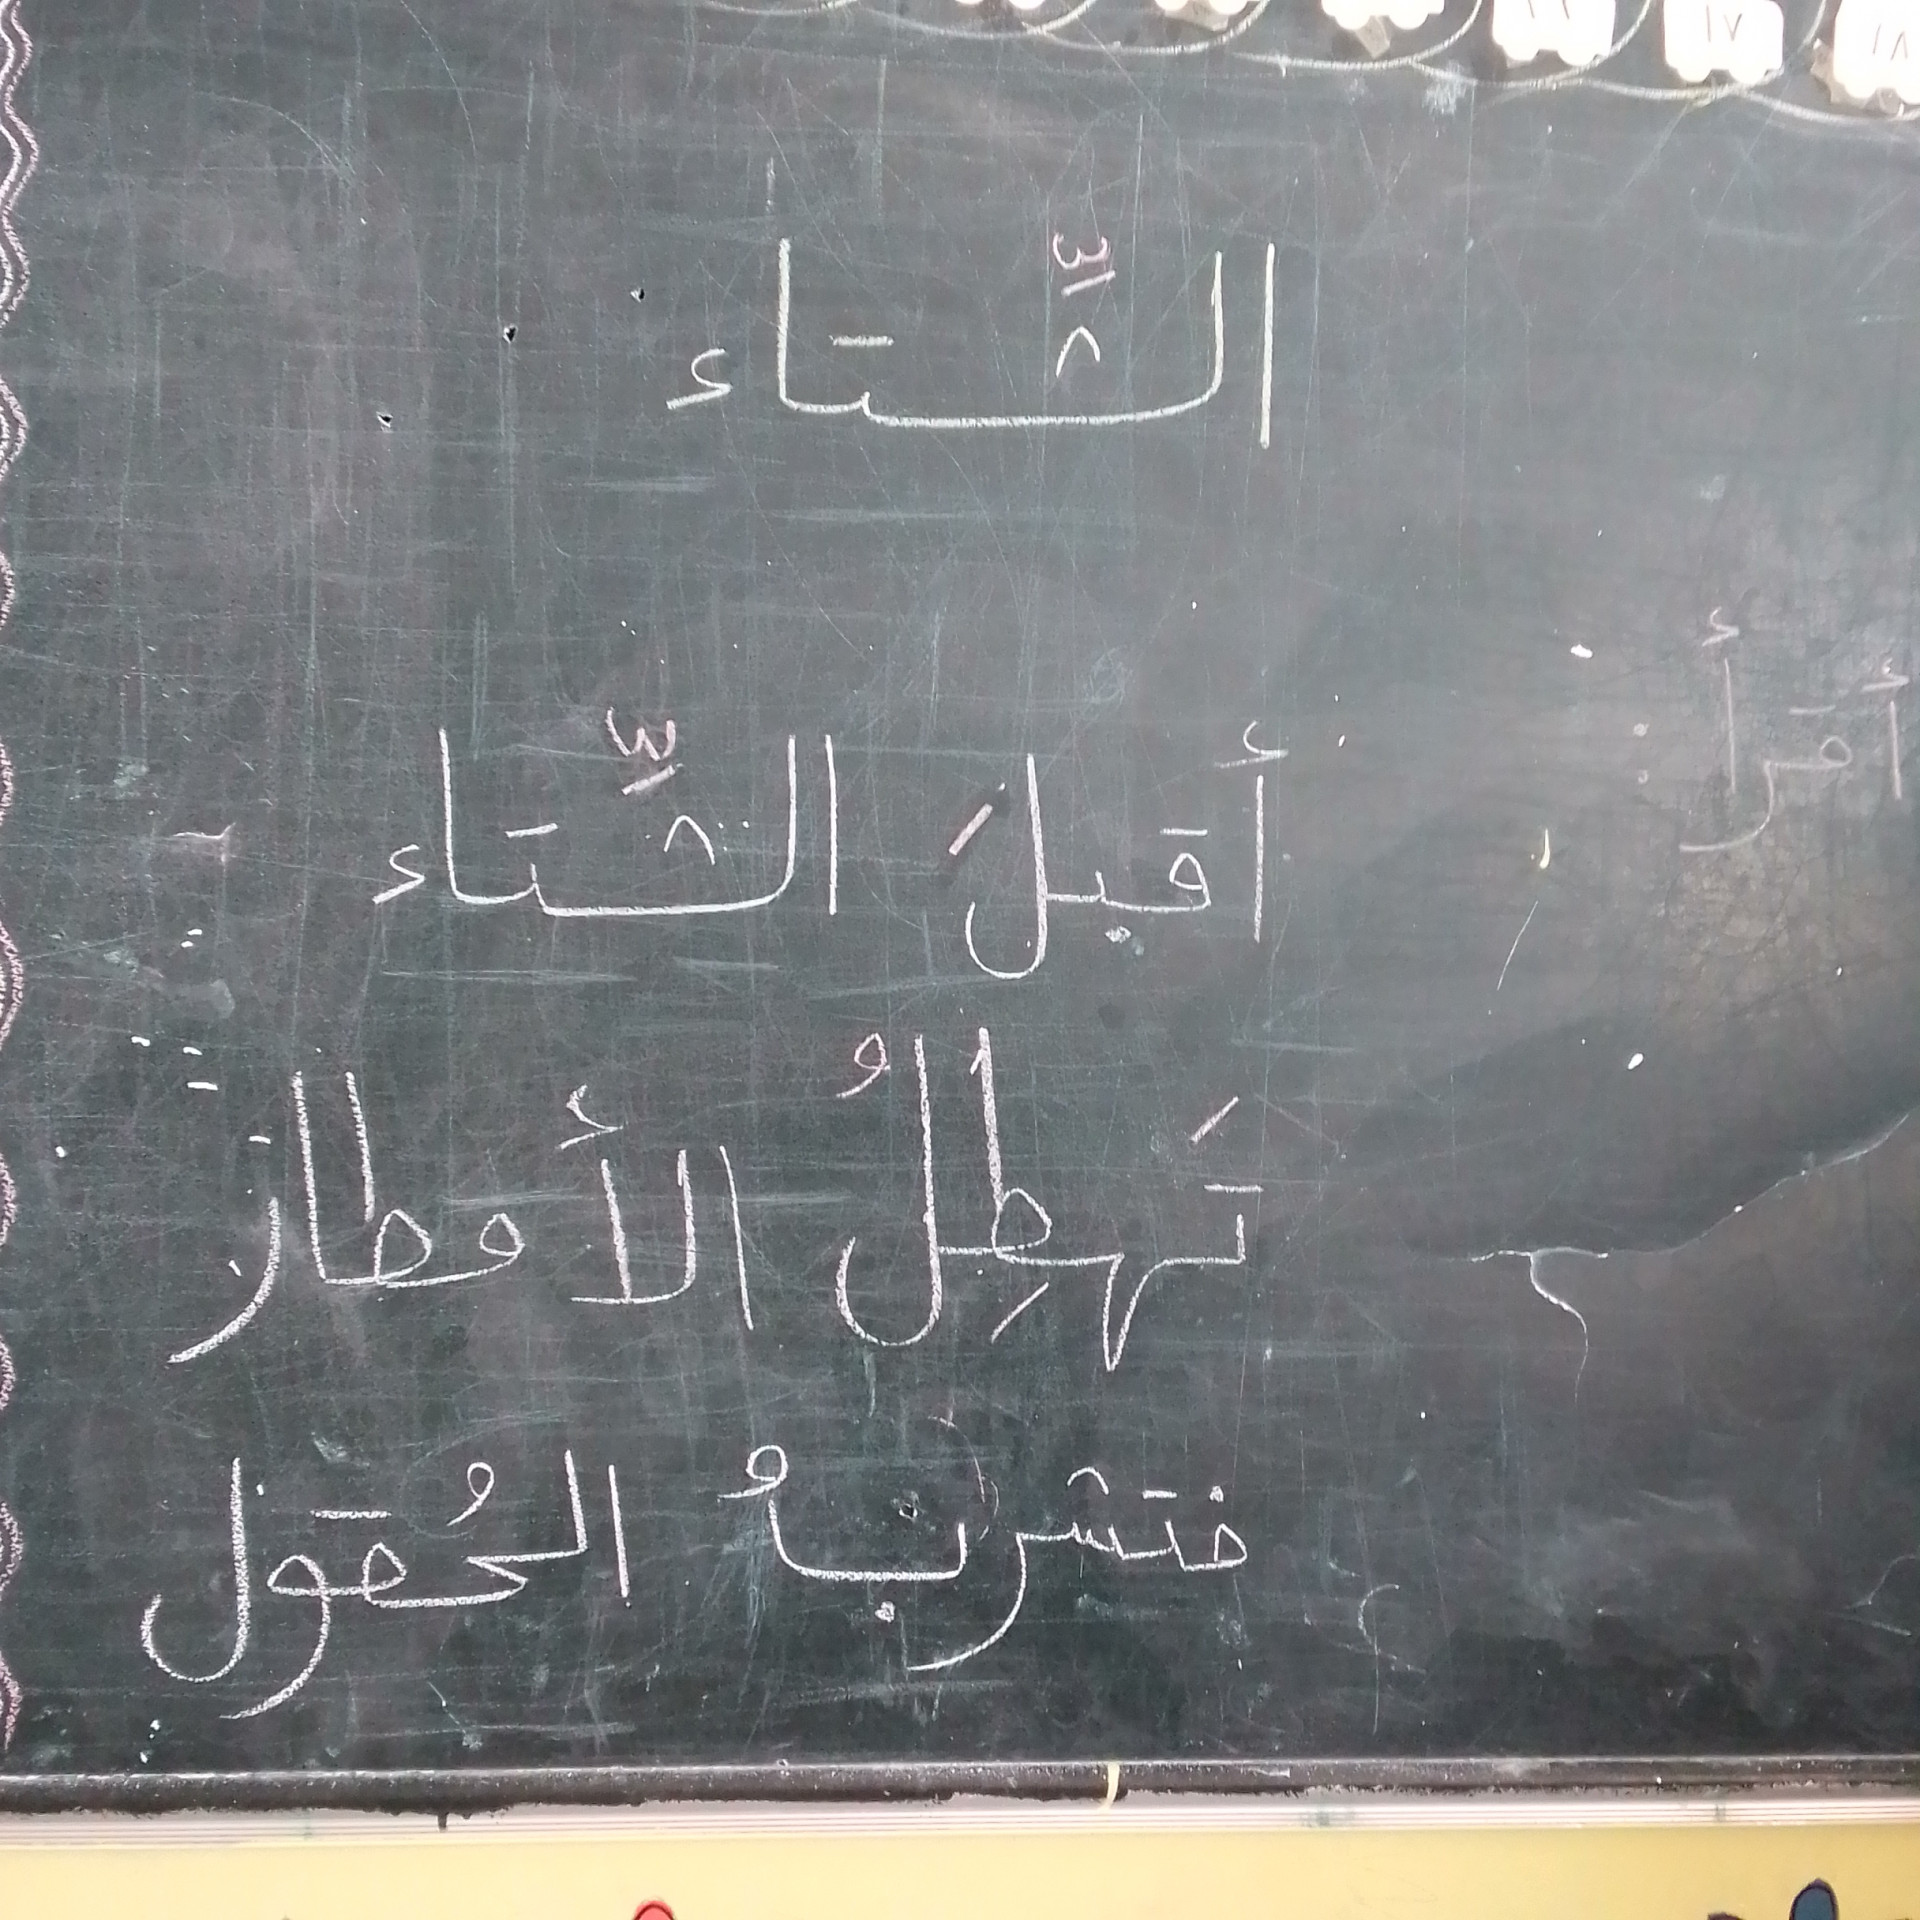 ١٦ ١٧ ١٨
الشِّتاء
أقرأ :
أقبلَ الشِّتاء
تَهطِلُ الأمطار
فتشربُه الحُقول